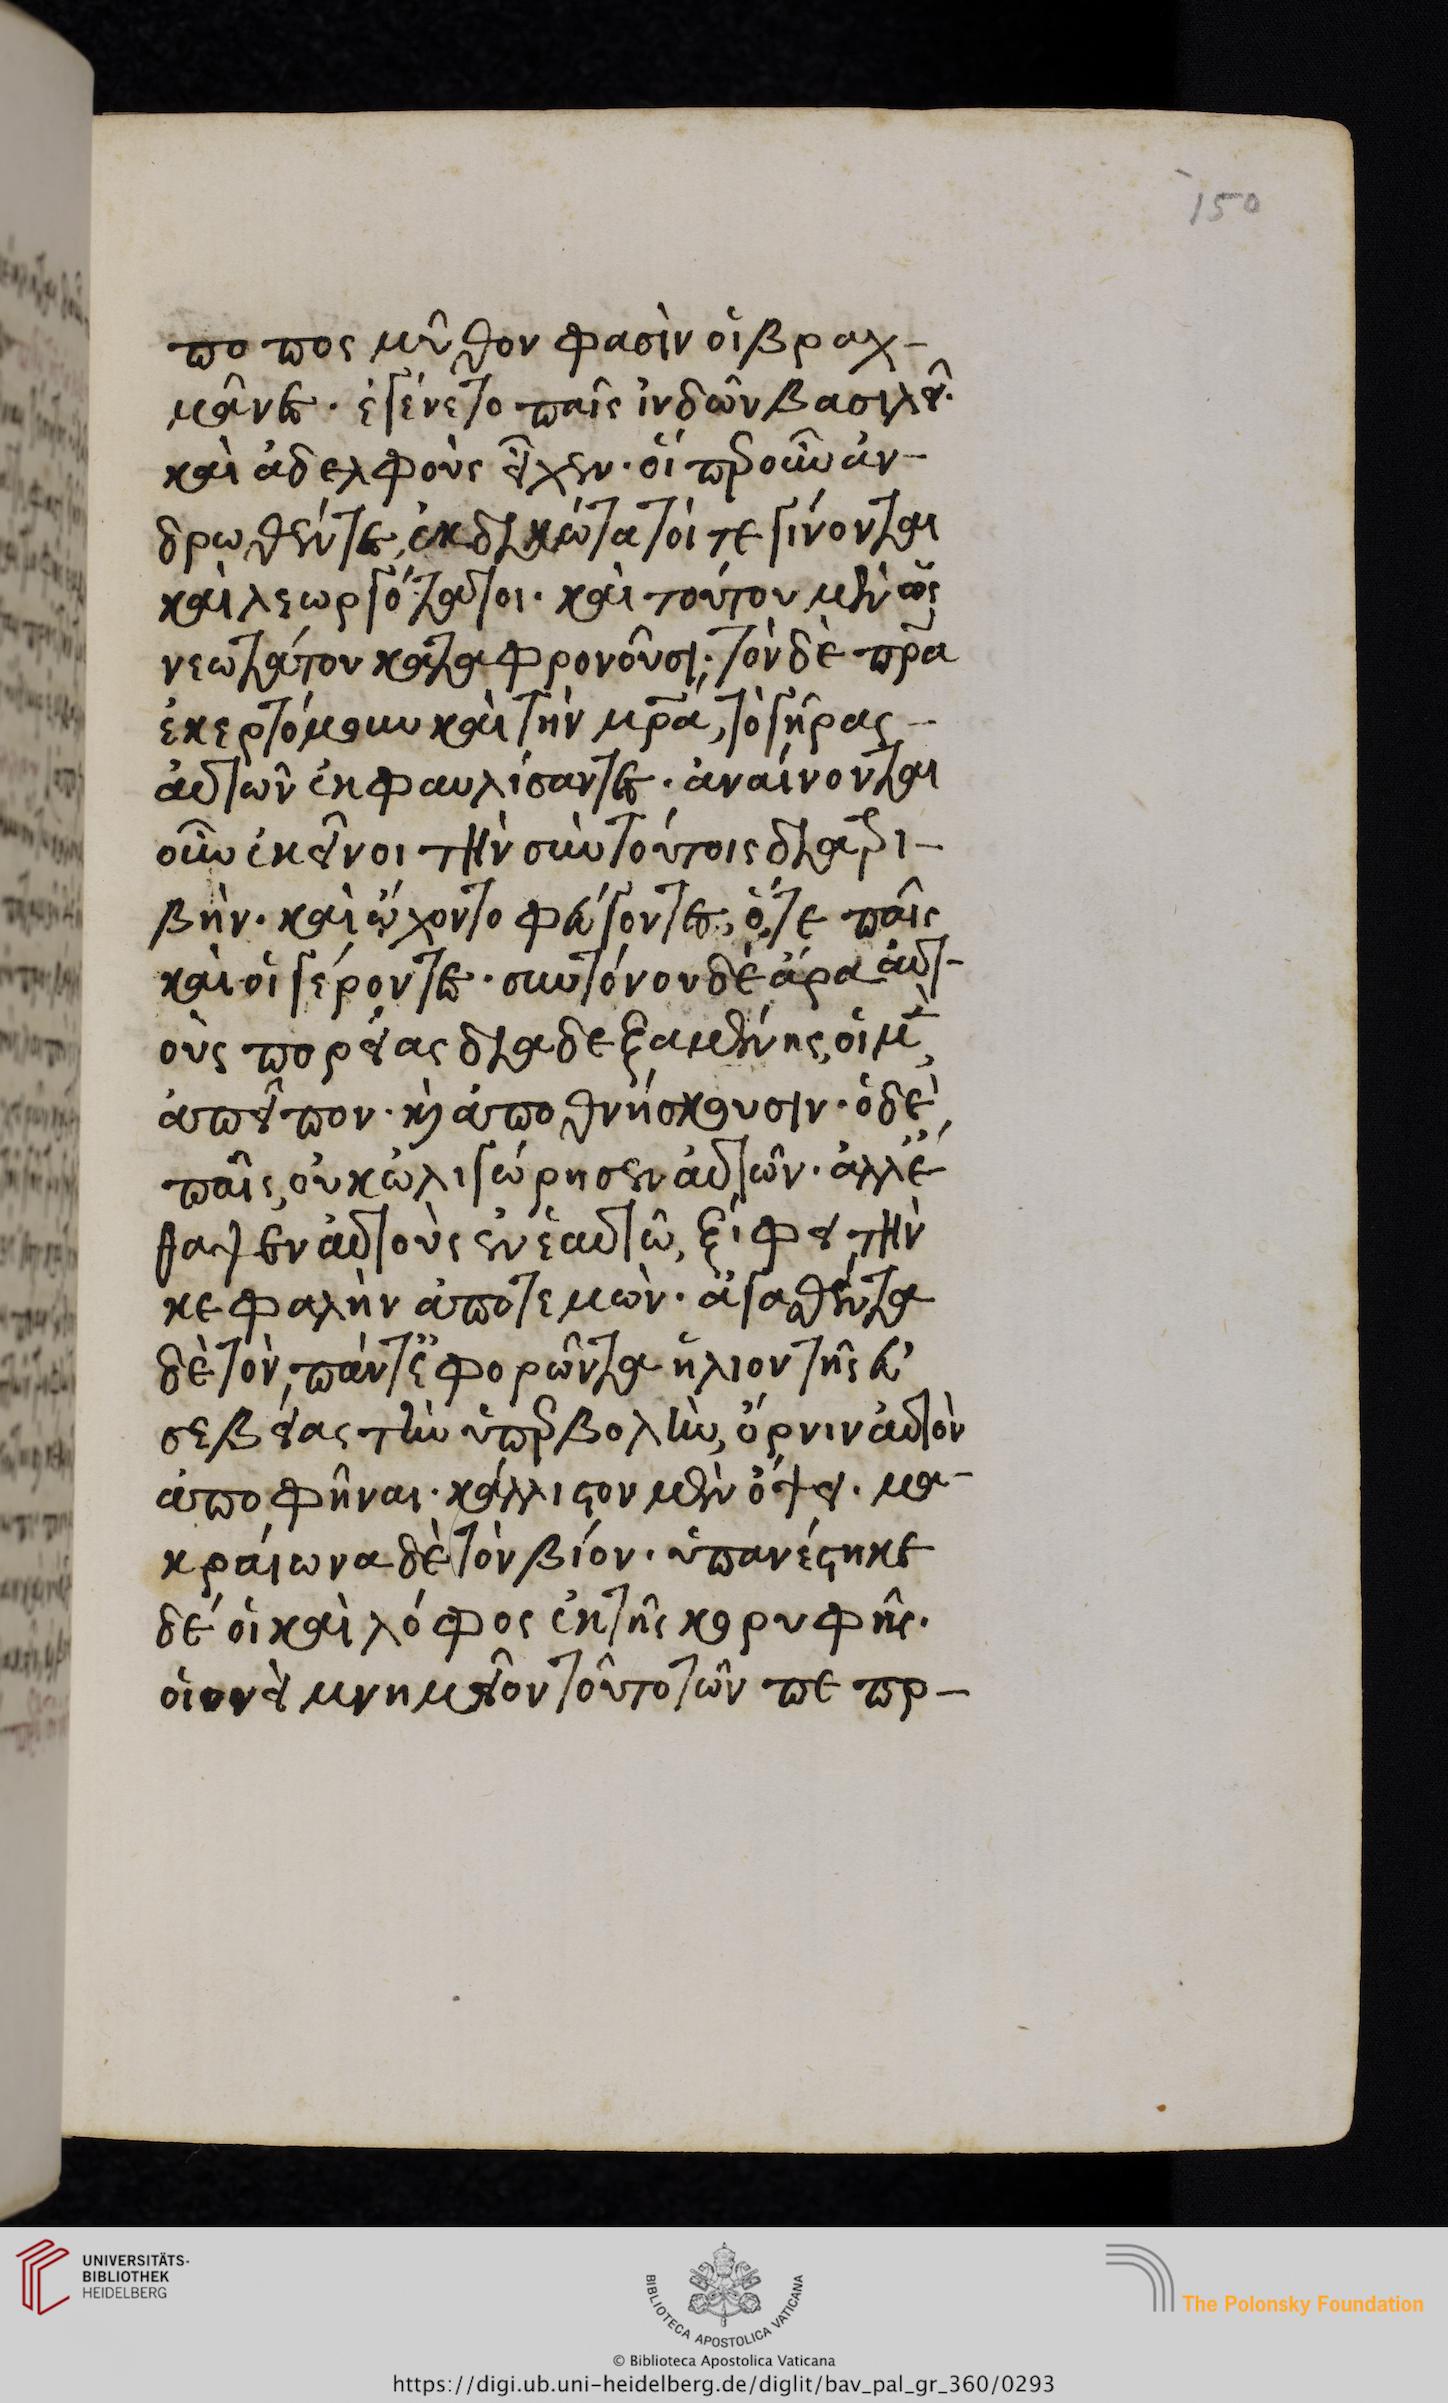 150
ποπος μῦθον φασὶν οἱ βραχ-
μᾶνες· ἐγένετο παῖς ἰνδῶν βασιλεῖ·
καὶ ἀδελφοὺς εἶχεν· οἵπερ οὖν ἀν-
δρωθέντες, ἐκδικώτατοί τε γίνονται
καὶ λεωργότατοι· καὶ τούτου μὲν ὡς
νεωτάτου καταφρονοῦσι· τὸν δὲ πρα
ἐκερτόμουν καὶ τὴν μρα, τὸ γῆρας -
αὐτῶν ἐκφαυλίσαντες· ἀναίνονται
οὖν ἐκεῖνοι τὴν σὺν τούτοις διατρι-
βήν· καὶ ᾤχοντο φεύγοντες, ὅ,τε παῖς
καὶ οἱ γέροντες· συντόνου δὲ ἄρα αὐτ-
οὺς πορείας διαδεξαμένης, οἱ μὲν,
ἀπεῖπον· κὶ ἀποθνήσκουσιν· ὁ δὲ
παῖς, οὐκ ὠλιγώρησεν αὐτῶν· ἀλλ' ἔ-
θαψεν αὐτοὺς ἐν ἑαυτῶ, ξίφει τὴν
κεφαλὴν ἀποτεμών· ἀγασθέντα
δὲ τὸν, πάντ' ἐφορῶντα ἥλιον τῆς εὐ
σεβείας τὴν ὑπερβολὴν, ὄρνιν αὐτὸν
ἀποφῆναι· κάλλιστον μὲν ὄψει· μα-
κραίωνα δὲ τὸν βίον· ὑπανέστηκε
δέ οἱ καὶ λόφος ἐκ τῆς κορυφῆς·
οἱονεὶ μνημεῖον τοῦτο τῶν πεπρ-
UNIVERSITÄTS-
BIBLIOTHEK
HEIDELBERG
BIBLIOTECA APOSTOLICA VATICANA
The Polonsky Foundation
© Biblioteca Apostolica Vaticana
https://digi.ub.uni-heidelberg.de/diglit/bav_pal_gr_360/0293